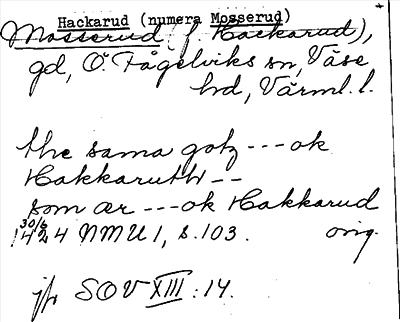 Hackarud (numera Mosserud)
Mosserud (f. Hackarud),
gd, Ö. Fågelviks sn, Väse
hd, Värml. l.
the sama gotz --- ok
Hakkaruth --
som ær --- ok Hakkarud
30/6 1424 NMU 1, s. 103. orig.
jfr SOV XIII : 14.